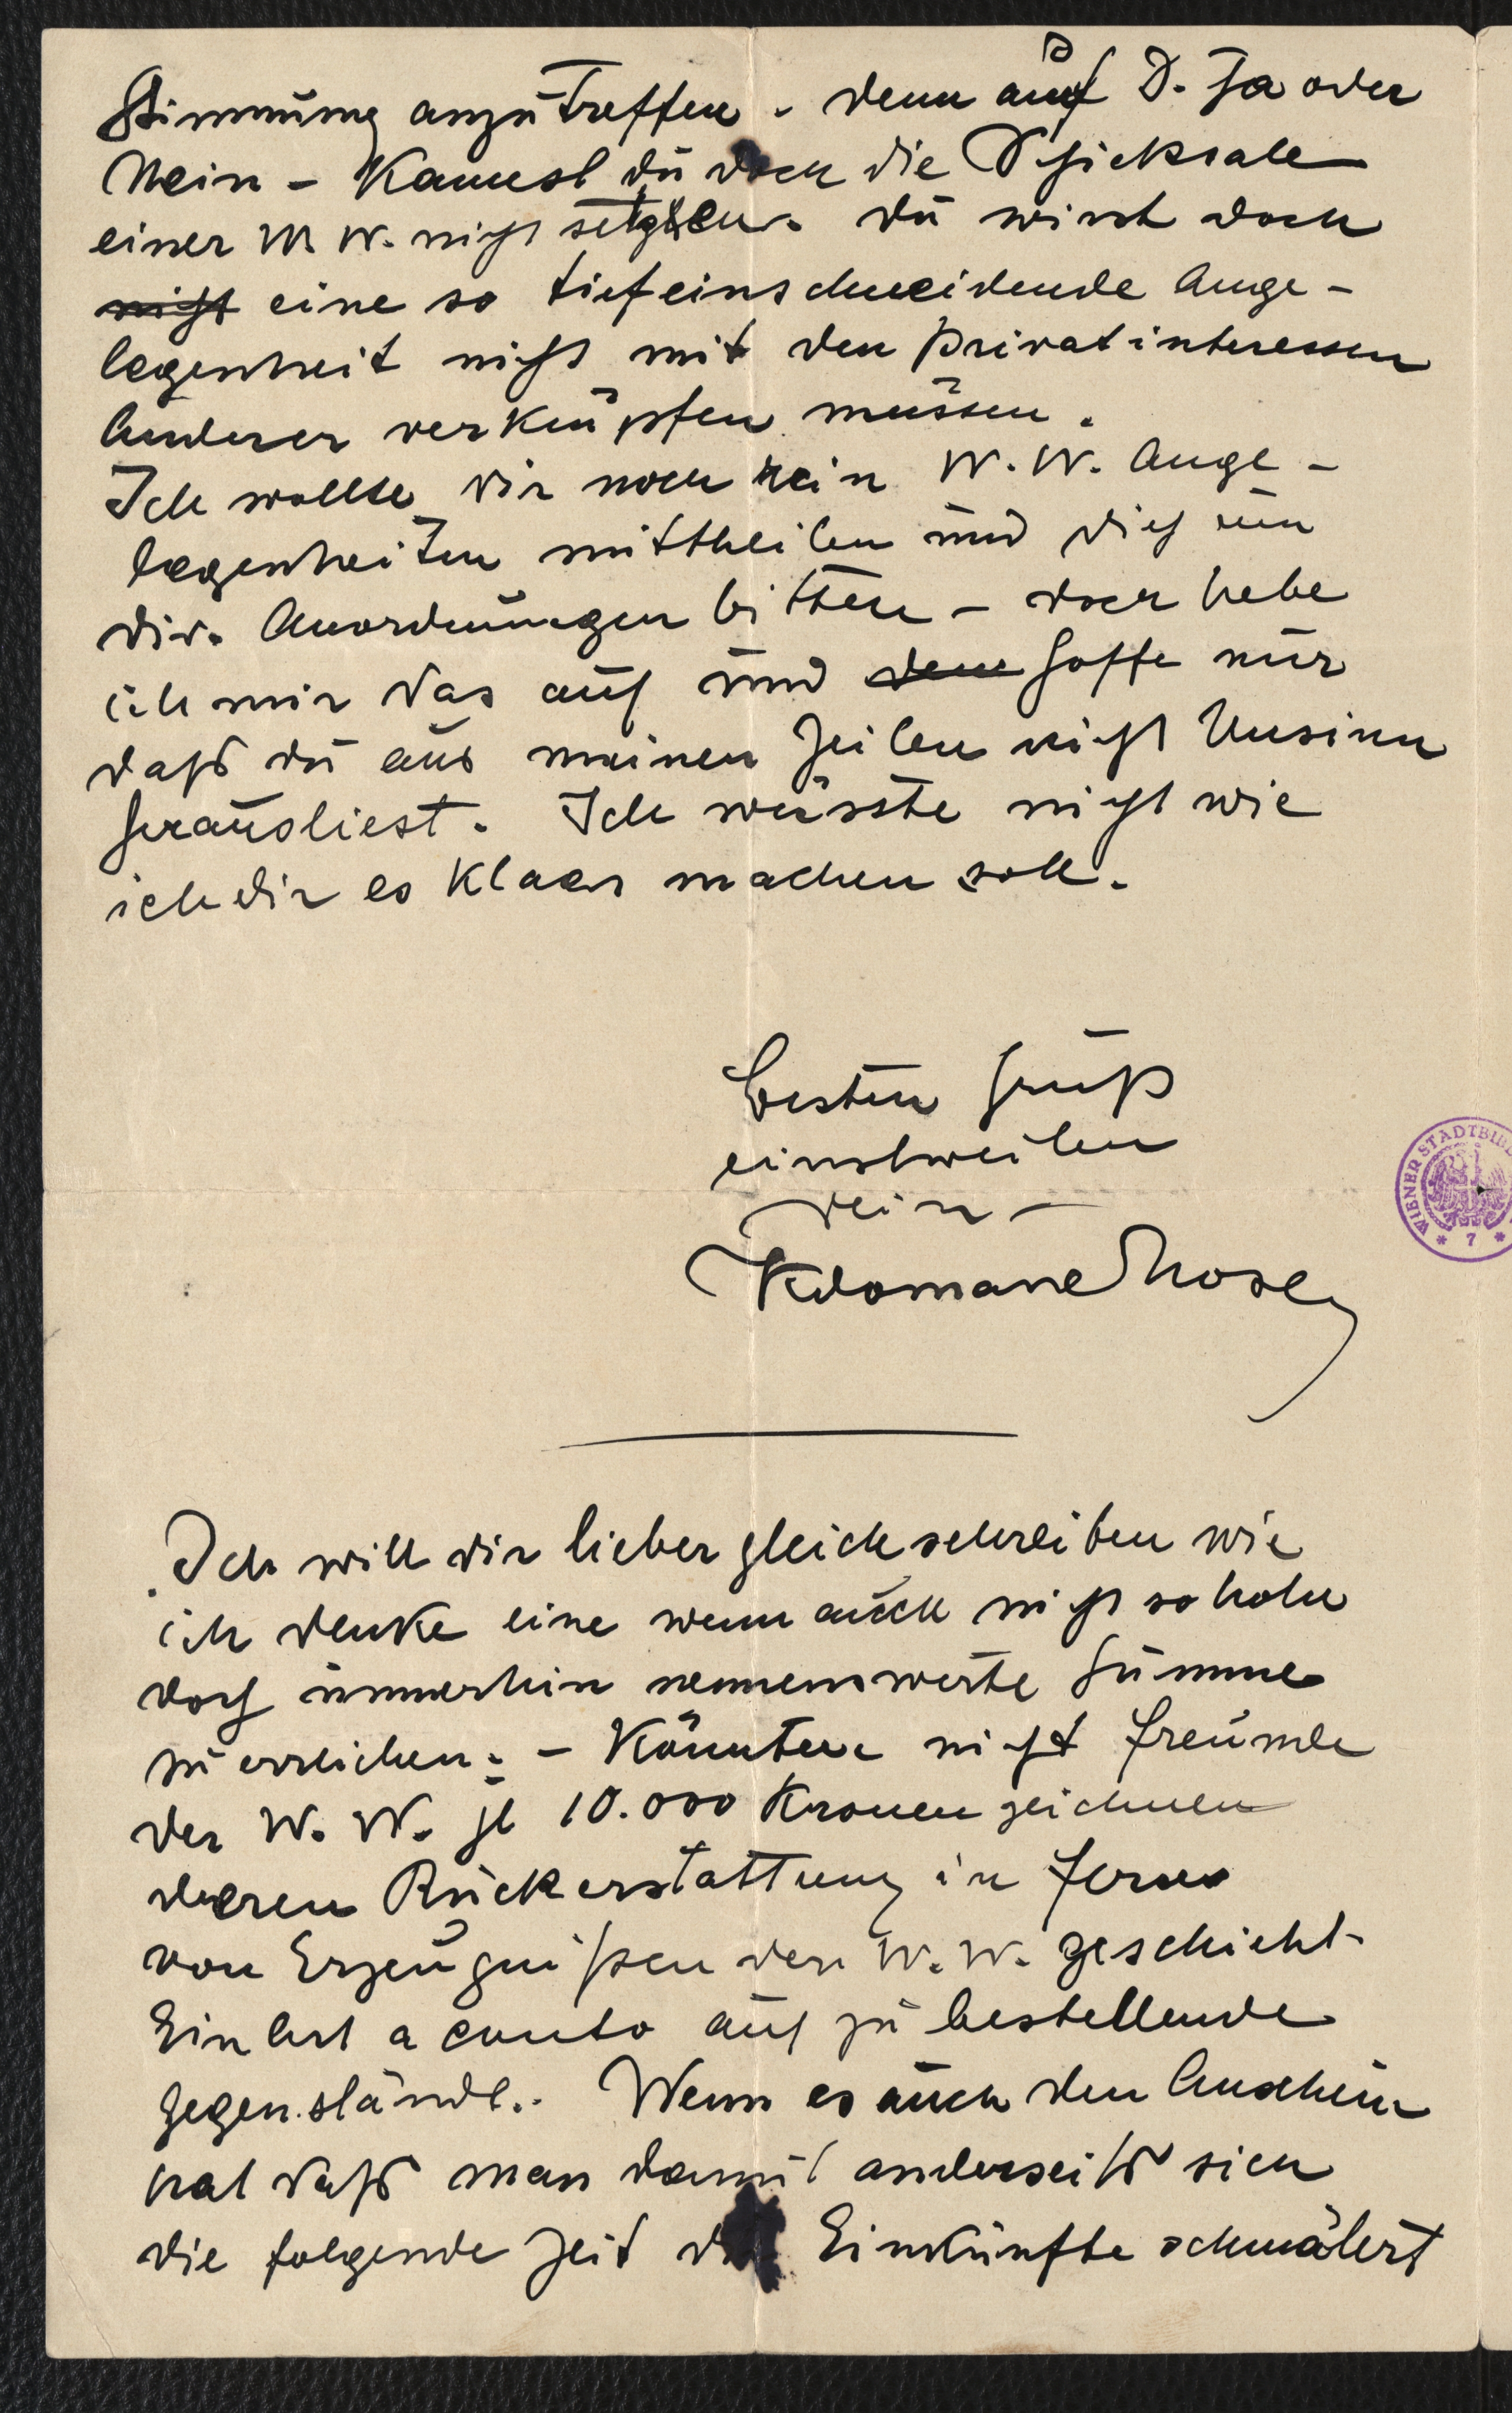 Stimmung anzutreffen. denn auf D. Ja oder
Nein - Kannst du doch die Schicksale
einer W W. nicht setzen. du wirst doch
nicht eine so tiefeinschneidende Ange-
legenheit nicht mit den Privatinteressen
Anderer verknüpfen müssen.
Ich wollte dir noch rein W. W. Ange-
legenheiten mittheilen und dich um
div. Anordnungen bitten - doch hebe
ich mir das auf und hoffe nur
dass du aus meinen Zeilen nicht Unsinn
herausliest. Ich wüsste nicht wie
ich dir es klaar machen soll.
Besten Gruß
einstweilen
dein -
Kolomanmoser
Ich will dir lieber gleich schreiben wie
ich denke eine wenn auch nicht so hohe
doch immerhin nennenswerte Summe
zu erreichen: - Könnten nicht Freunde
der W. W. je 10.000 Kronen zeichnen
deren Rückerstattung in Form
von Erzeugnißen der W. W. geschieht.
Ein Art a conto auf zu bestellende
Gegenstände.. Wenn es auch den Anschein
hat daß man damit anderseits sich
die folgende Zeit Einkünfte schmälert
WIENER STADTBIBL
* 7 *